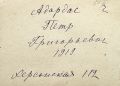 Адардас
Петр
Григорьевич
1919
Херсонская 112